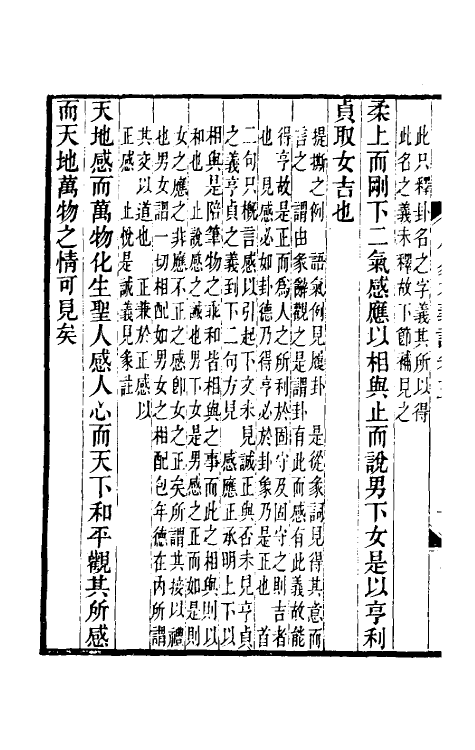 此只釋卦名之字義其所以得
此名之義未釋故下節補見之
柔上而剛下二氣感應以相與止而說男下女是以亨利
貞取女吉也
提撕之例　語氣例見履卦　是從彖詞見得其意而
言之　謂由彖辭觀之是謂卦有此而感有此義故能
得亨故是正而為人之所利於固守及固守之則吉者
也　見感必如卦德乃得亨必於卦象乃是正也　首
二句只概言感以引起下文未見誠正與否未見亨貞
之義亨貞之義到下二句方見　感應正承明上下以
相與是陪筆物之乖和皆相與之事而此之相與則以
和也　止說感之誠也男下女是男感之正而如是則
女之應之非應不正之感卽女之正矣所謂其接以禮
也男女謂一切相配如男女之相配包年德在內所謂
其交以道也　正兼於正感以
正感　止悅是誠義見彖註
天地感而萬物化生聖人感人心而天下和平觀其所感
而天地萬物之情可見矣